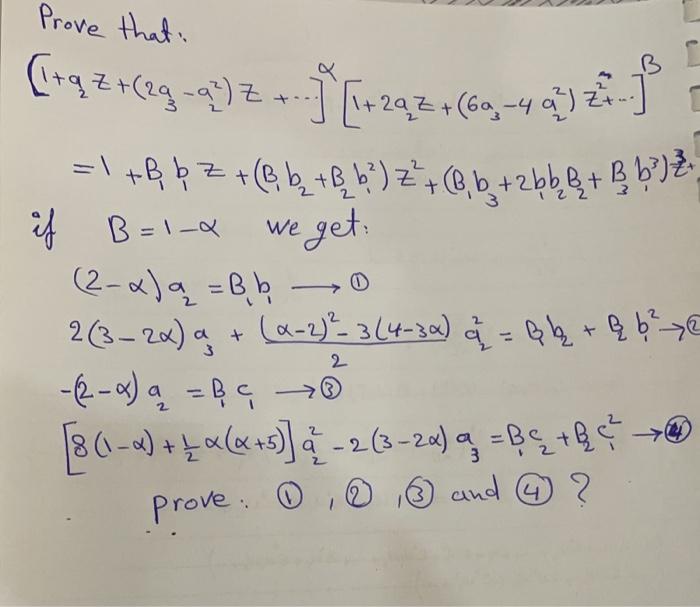 Prove that:
[1+a₂z+(2a₃-a₂²)z+...]^α [1+2a₂z+(6a₃-4a₂²)z²+...]^B
=1+B₁b₁z+(B₁b₂+B₂b₁²)z²+(B₁b₃+2b₁b₂B₂+B₃b₁³)z³+
if B=1-α we get:
(2-α)a₂=B₁b₁ → ①
2(3-2α)a₃+((α-2)²-3(4-3α))/2 a₂²=B₁b₂+B₂b₁² → ②
-(2-α)a₂=B₁c₁ → ③
[8(1-α)+½α(α+5)]a₂²-2(3-2α)a₃=B₁c₂+B₂c₁² → ④
prove. ①, ②, ③ and ④ ?